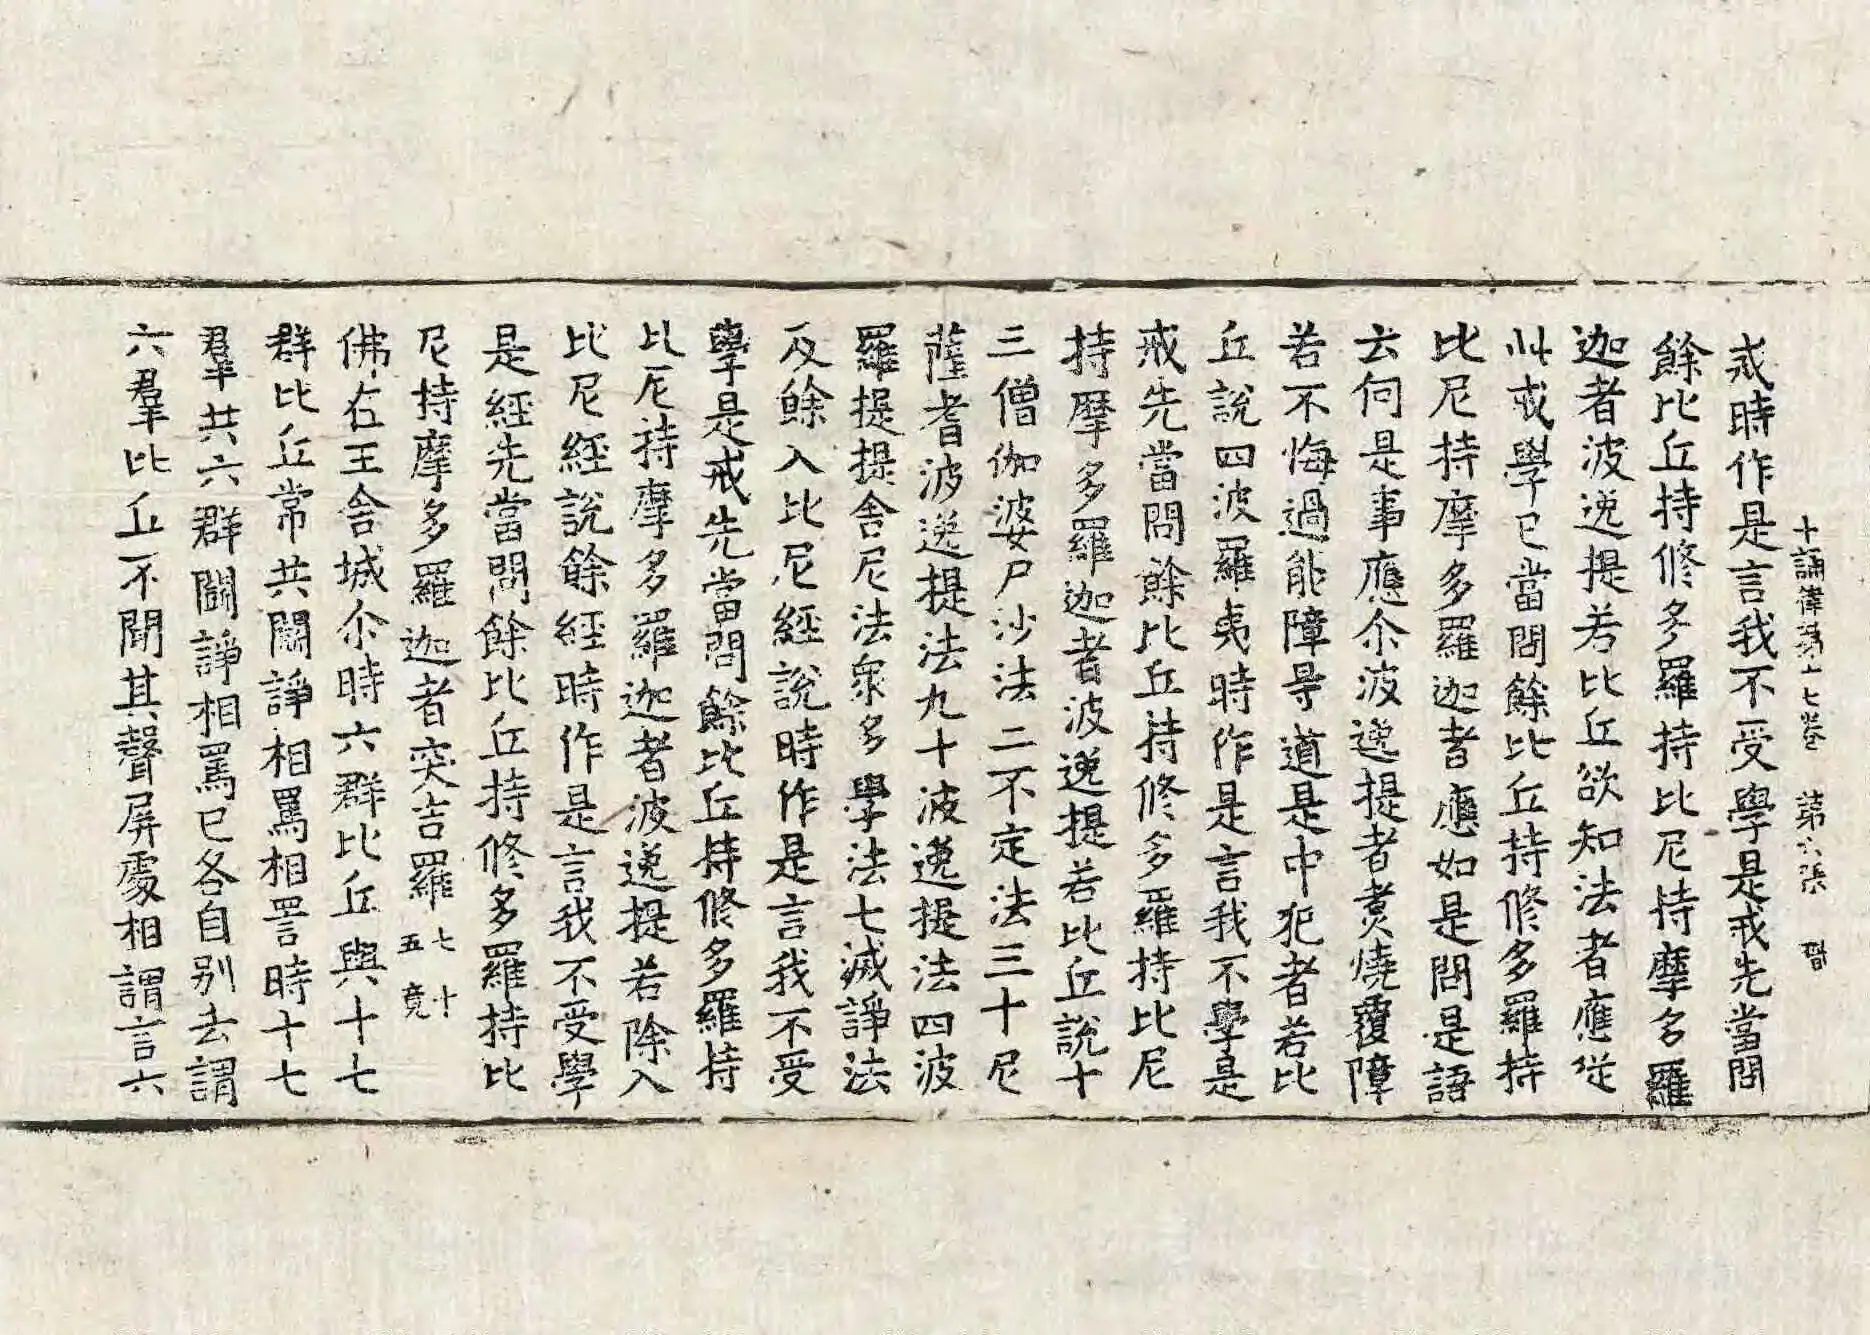 十誦律第十七卷　第六張
戒時作是言我不受學是戒先當問
餘比丘持修多羅持比尼持摩多羅
迦者波逸提若比丘欲知法者應從
此戒學已當問餘比丘持修多羅持
比尼持摩多羅迦者應如是問是語
云何是事應尒波逸提者煑燒覆障
若不悔過能障㝵道是中犯者若比
丘說四波羅夷時作是言我不學是
戒先當問餘比丘持修多羅持比尼
持摩多羅迦者波逸提若比丘說十
三僧伽婆尸沙法二不定法三十尼
薩耆波逸提法九十波逸提法四波
羅提提舍尼法衆多學法七滅諍法
及餘入比尼經說時作是言我不受
學是戒先當問餘比丘持修多羅持
比尼持摩多羅迦者波逸提若除入
比尼經說餘經時作是言我不受學
是經先當問餘比丘持修多羅持比
尼持摩多羅迦者突吉羅七十五竟
佛在王舍城尒時六群比丘與十七
群比丘常共鬪諍相罵相詈時十七
羣共六群鬪諍相罵已各自別去謂
六羣比丘不聞其聲屏處相謂言六